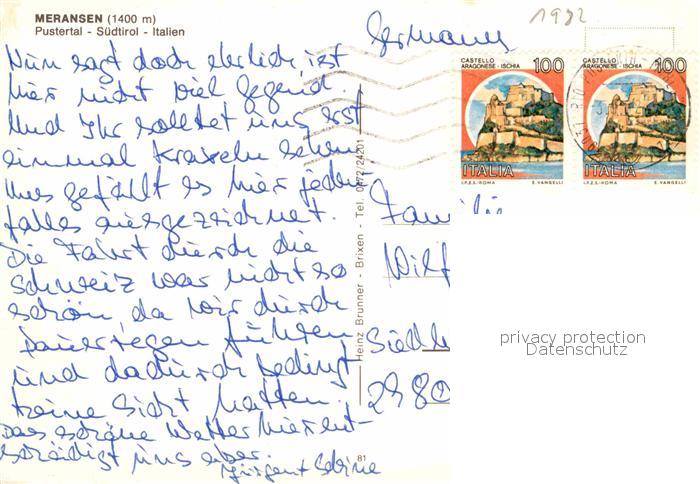 MERANSEN (1400 m)
Pustertal - Südtirol - Italien
Nun sagt doch ehrlich ist
hier nicht viel Gegend.
Und Ihr solltet uns erst
einmal kraxeln sehen
Uns gefällt es hier jeden-
falls ausgezeichnet.
Die Fahrt durch die
Schweiz war nicht so
schön da wir durch
Dauerregen fuhren
und dadurch bedingt
keine Sicht hatten.
Das schöne Wetter hier ent-
schädigt uns aber.
Heinz Brunner - Brixen - Tel. 0472/24201
81
1982
Germany
CASTELLO
ARAGONESE - ISCHIA
100
ITALIA
I.P.Z.S. - ROMA
E. VANGELLI
CASTELLO
ARAGONESE - ISCHIA
100
ITALIA
I.P.Z.S. - ROMA
E. VANGELLI
Wilf
Siedl
2980
privacy protection
Datenschutz